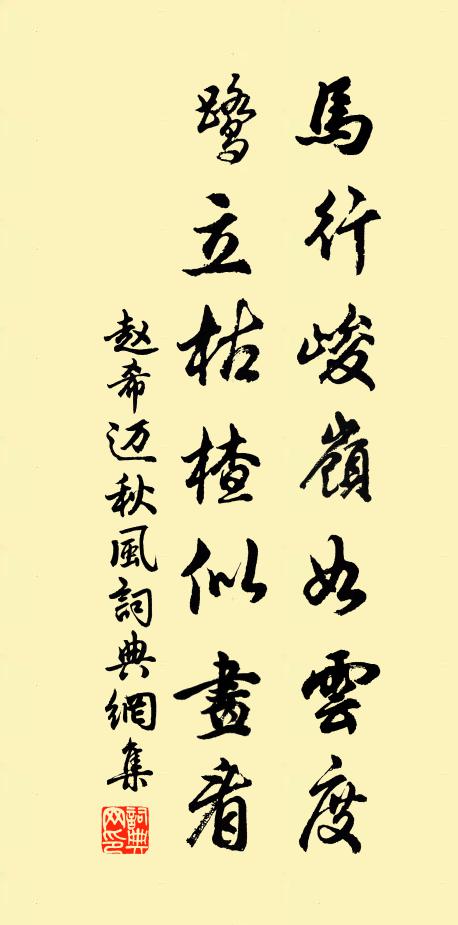 馬行峻嶺如雲度
鷺立枯楂似畫看
赵希迈秋風詞典網集
詞典网印